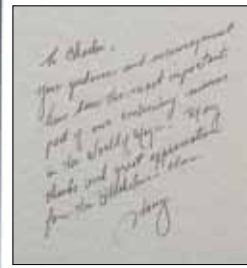 to Charlie,
your guidance and encouragement
have been the most important
part of our continuing success
in the World of Yoga. Many
thanks and great appreciation
from the